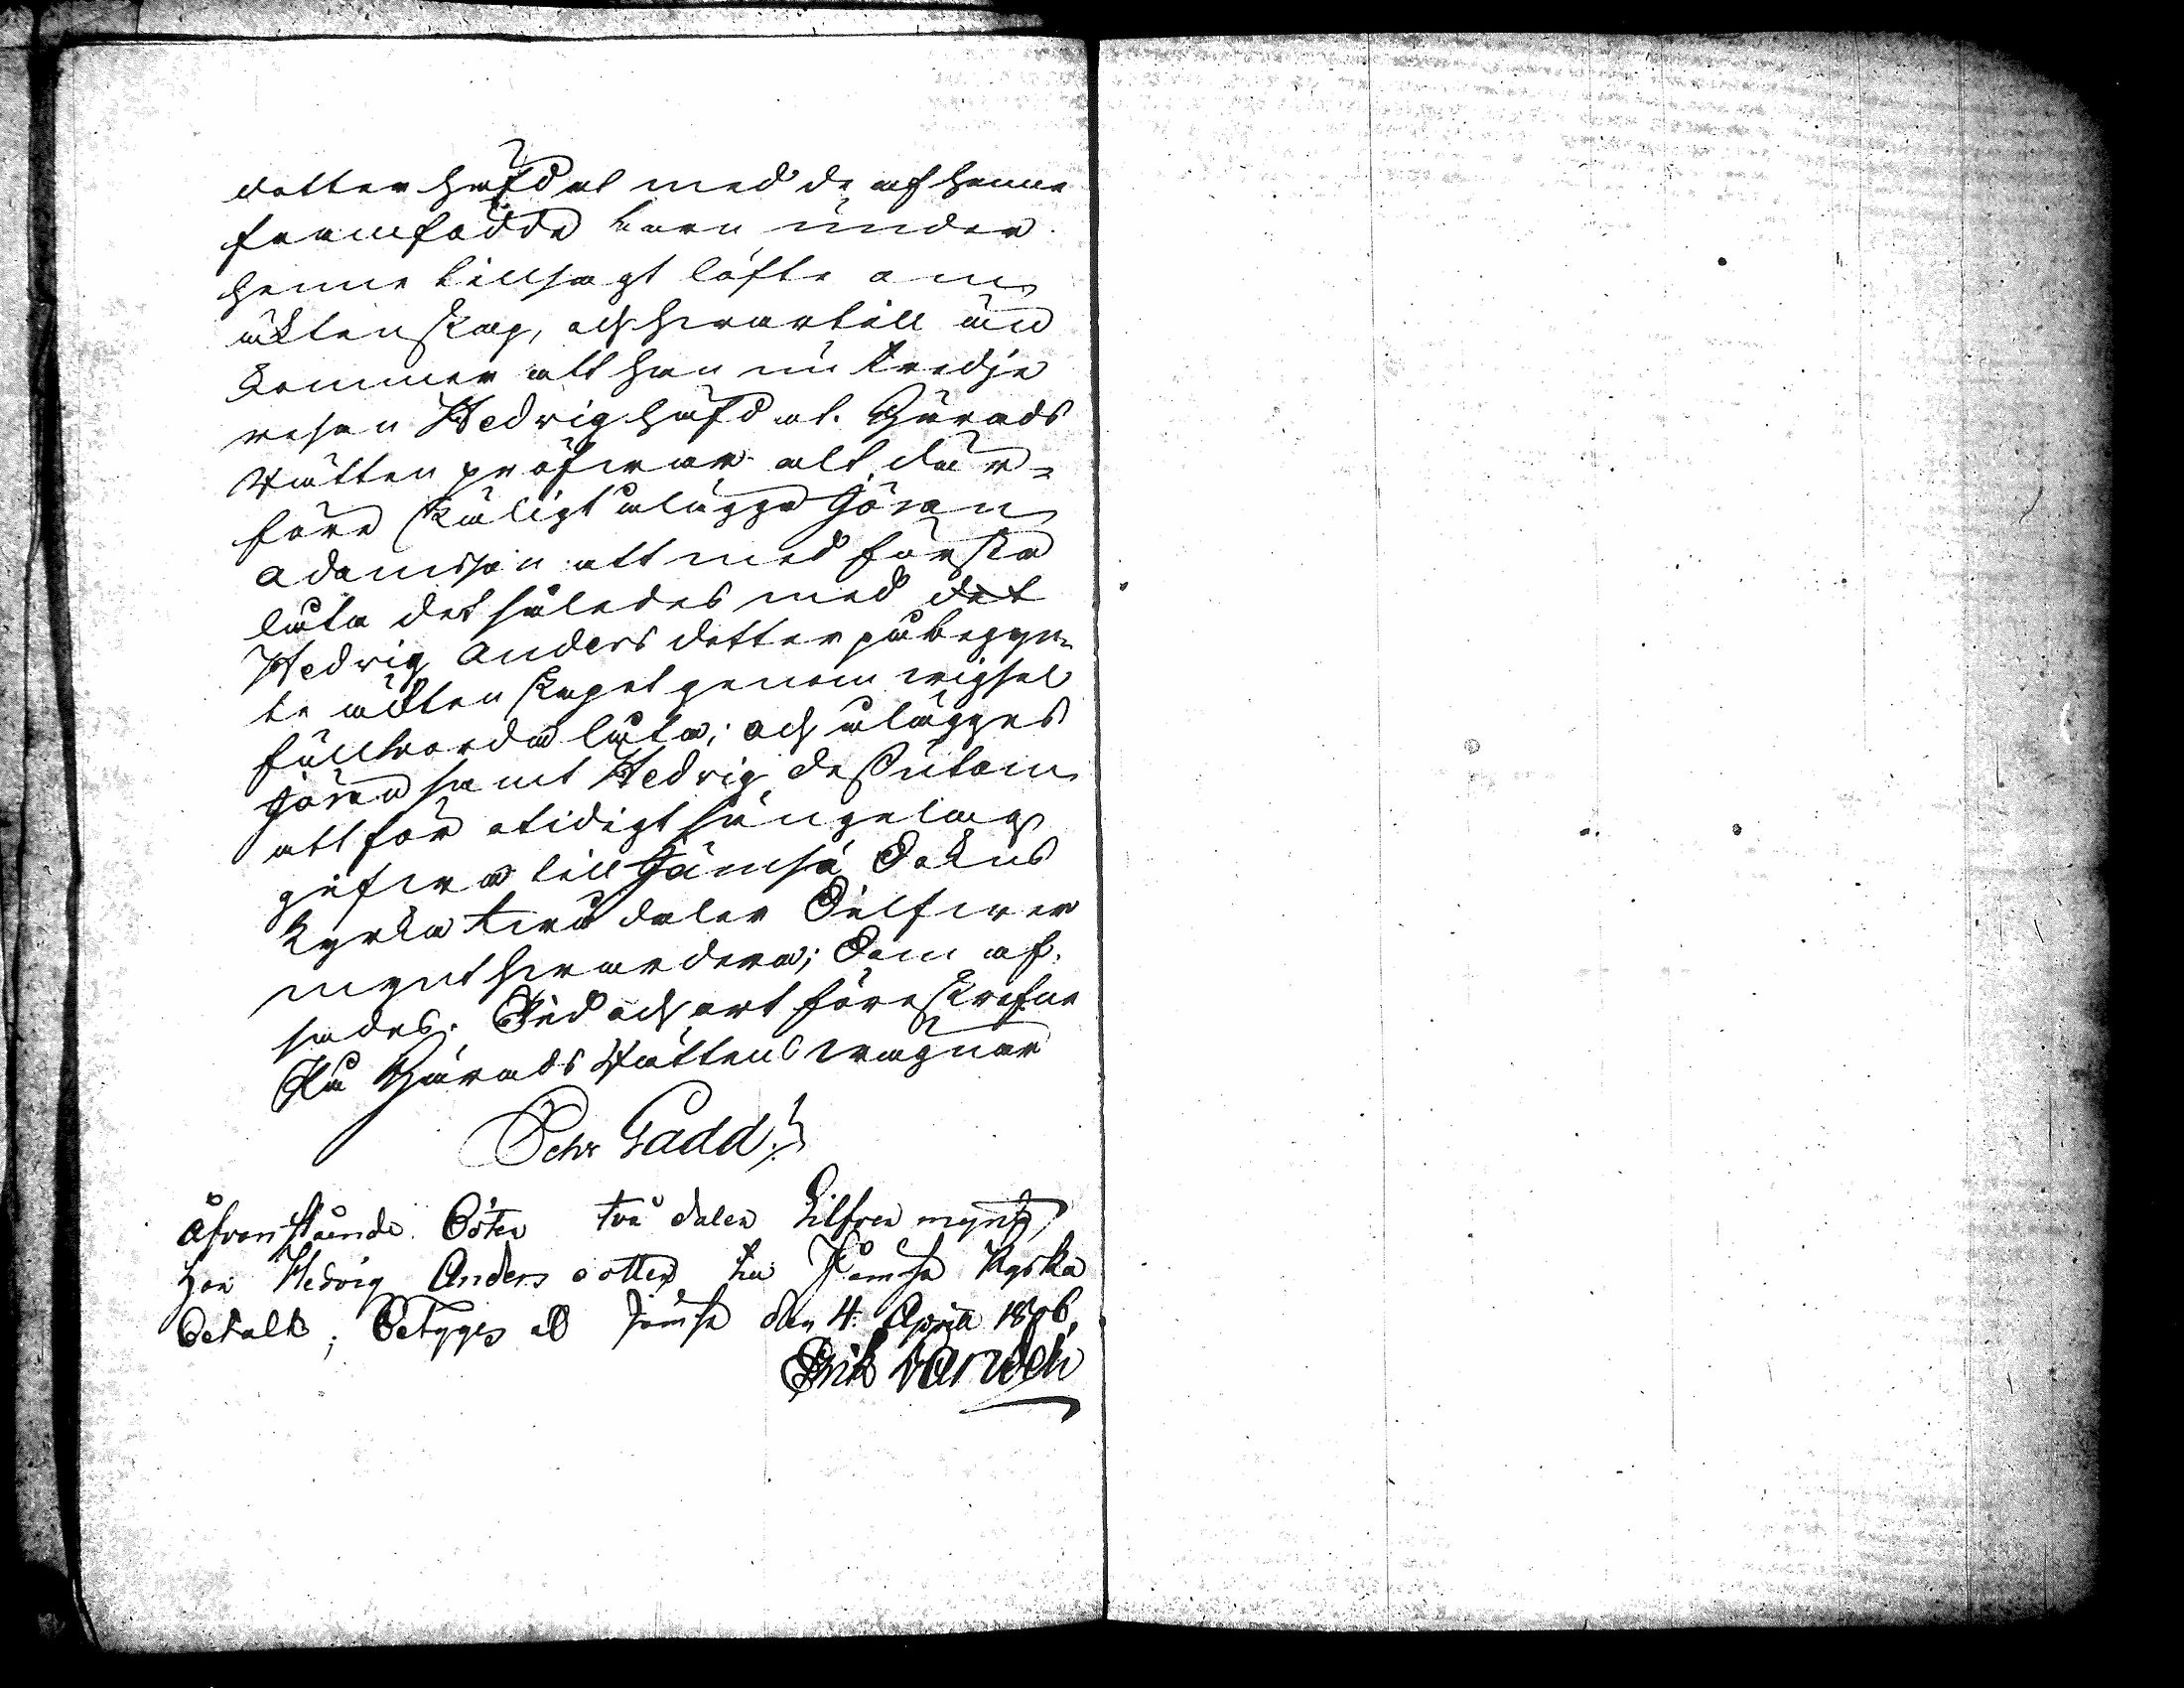 dotter häfdat med de af henne
framfödde barn under
henne tillsagt löfte om
äktenskap, och hwartill än
kommer att han nu tredje
resan Hedvig häfdat. Härads
Rätten pröfwar alt där-
före skäligt ålägga Göran
Adamsson att med första
låta det således med det
Hedvig Anders dotter påbegyn-
te äktenskapet genom wigsel
fullborda låta; och ålägges
Göran samt Hedvig dessutom
att för otidigt sängelag
gifwa till Jämsä Sokns
kyrka twå daler Silfwer
mynt hwardera; Som af-
sades. Tid och ort föreskrefne
På Härads Rättens wägnar
Pehr Gadd
Åfvanstående Böter två daler Silfver mynt,
har Hedvig Anders dotter til Jämsä Kyrka
Betalt; Betygas af Jämsä den 4 April 1806,
Erik